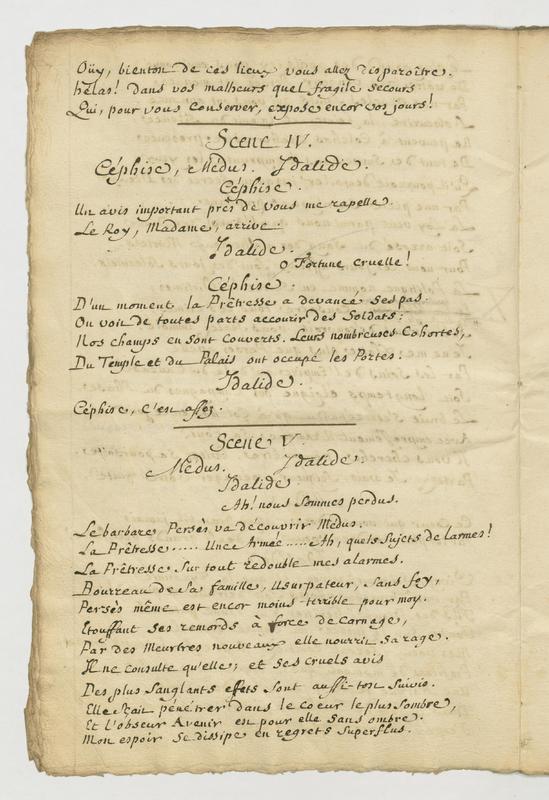 Oüy, bientôn de ces lieux vous allez disparoître.
hélas! dans vos malheurs quel fragile secours
Qui, pour vous conserver, expose encor vos jours!
Scene IV.
Céphise, Médus. Idalide.
Céphise.
Un avis important prês de vous me rapelle.
Le Roy, Madame, arrive.
Idalide.
O Fortune cruelle!
Céphise.
D'un moment la Prêtresse a devancé ses pas:
On voit de toutes parts accourir des Soldats:
Nos champs en sont couverts. Leurs nombreuses Cohortes,
Du Temple et du Palais ont occupé les Portes.
Idalide.
Céphise, C'en assez.
Scene V.
Médus. Idalide.
Idalide
Ah! nous sommes perdus.
Le barbare Persès va découvrir Médus.
La Prêtresse...... Une Armée.....Ah, quels sujets de larmes!
La Prêtresse sur tout redouble mes alarmes.
Bourreau de sa famille, Usurpateur, sans foy,
Persès même est encor moins terrible pour moy.
Etouffant ses remords à force de carnage,
Par des Meurtres nouveaux elle nourrit sa rage.
Il ne consulte qu'elle; et ses cruels avis
Des plus sanglants effets sont aussi-ton suivis.
Elle sçait pénétrer dans le coeur le plus sombre,
Et l'obscur Avenir en pour elle sans ombre.
Mon espoir se dissipe en regrets superflus.